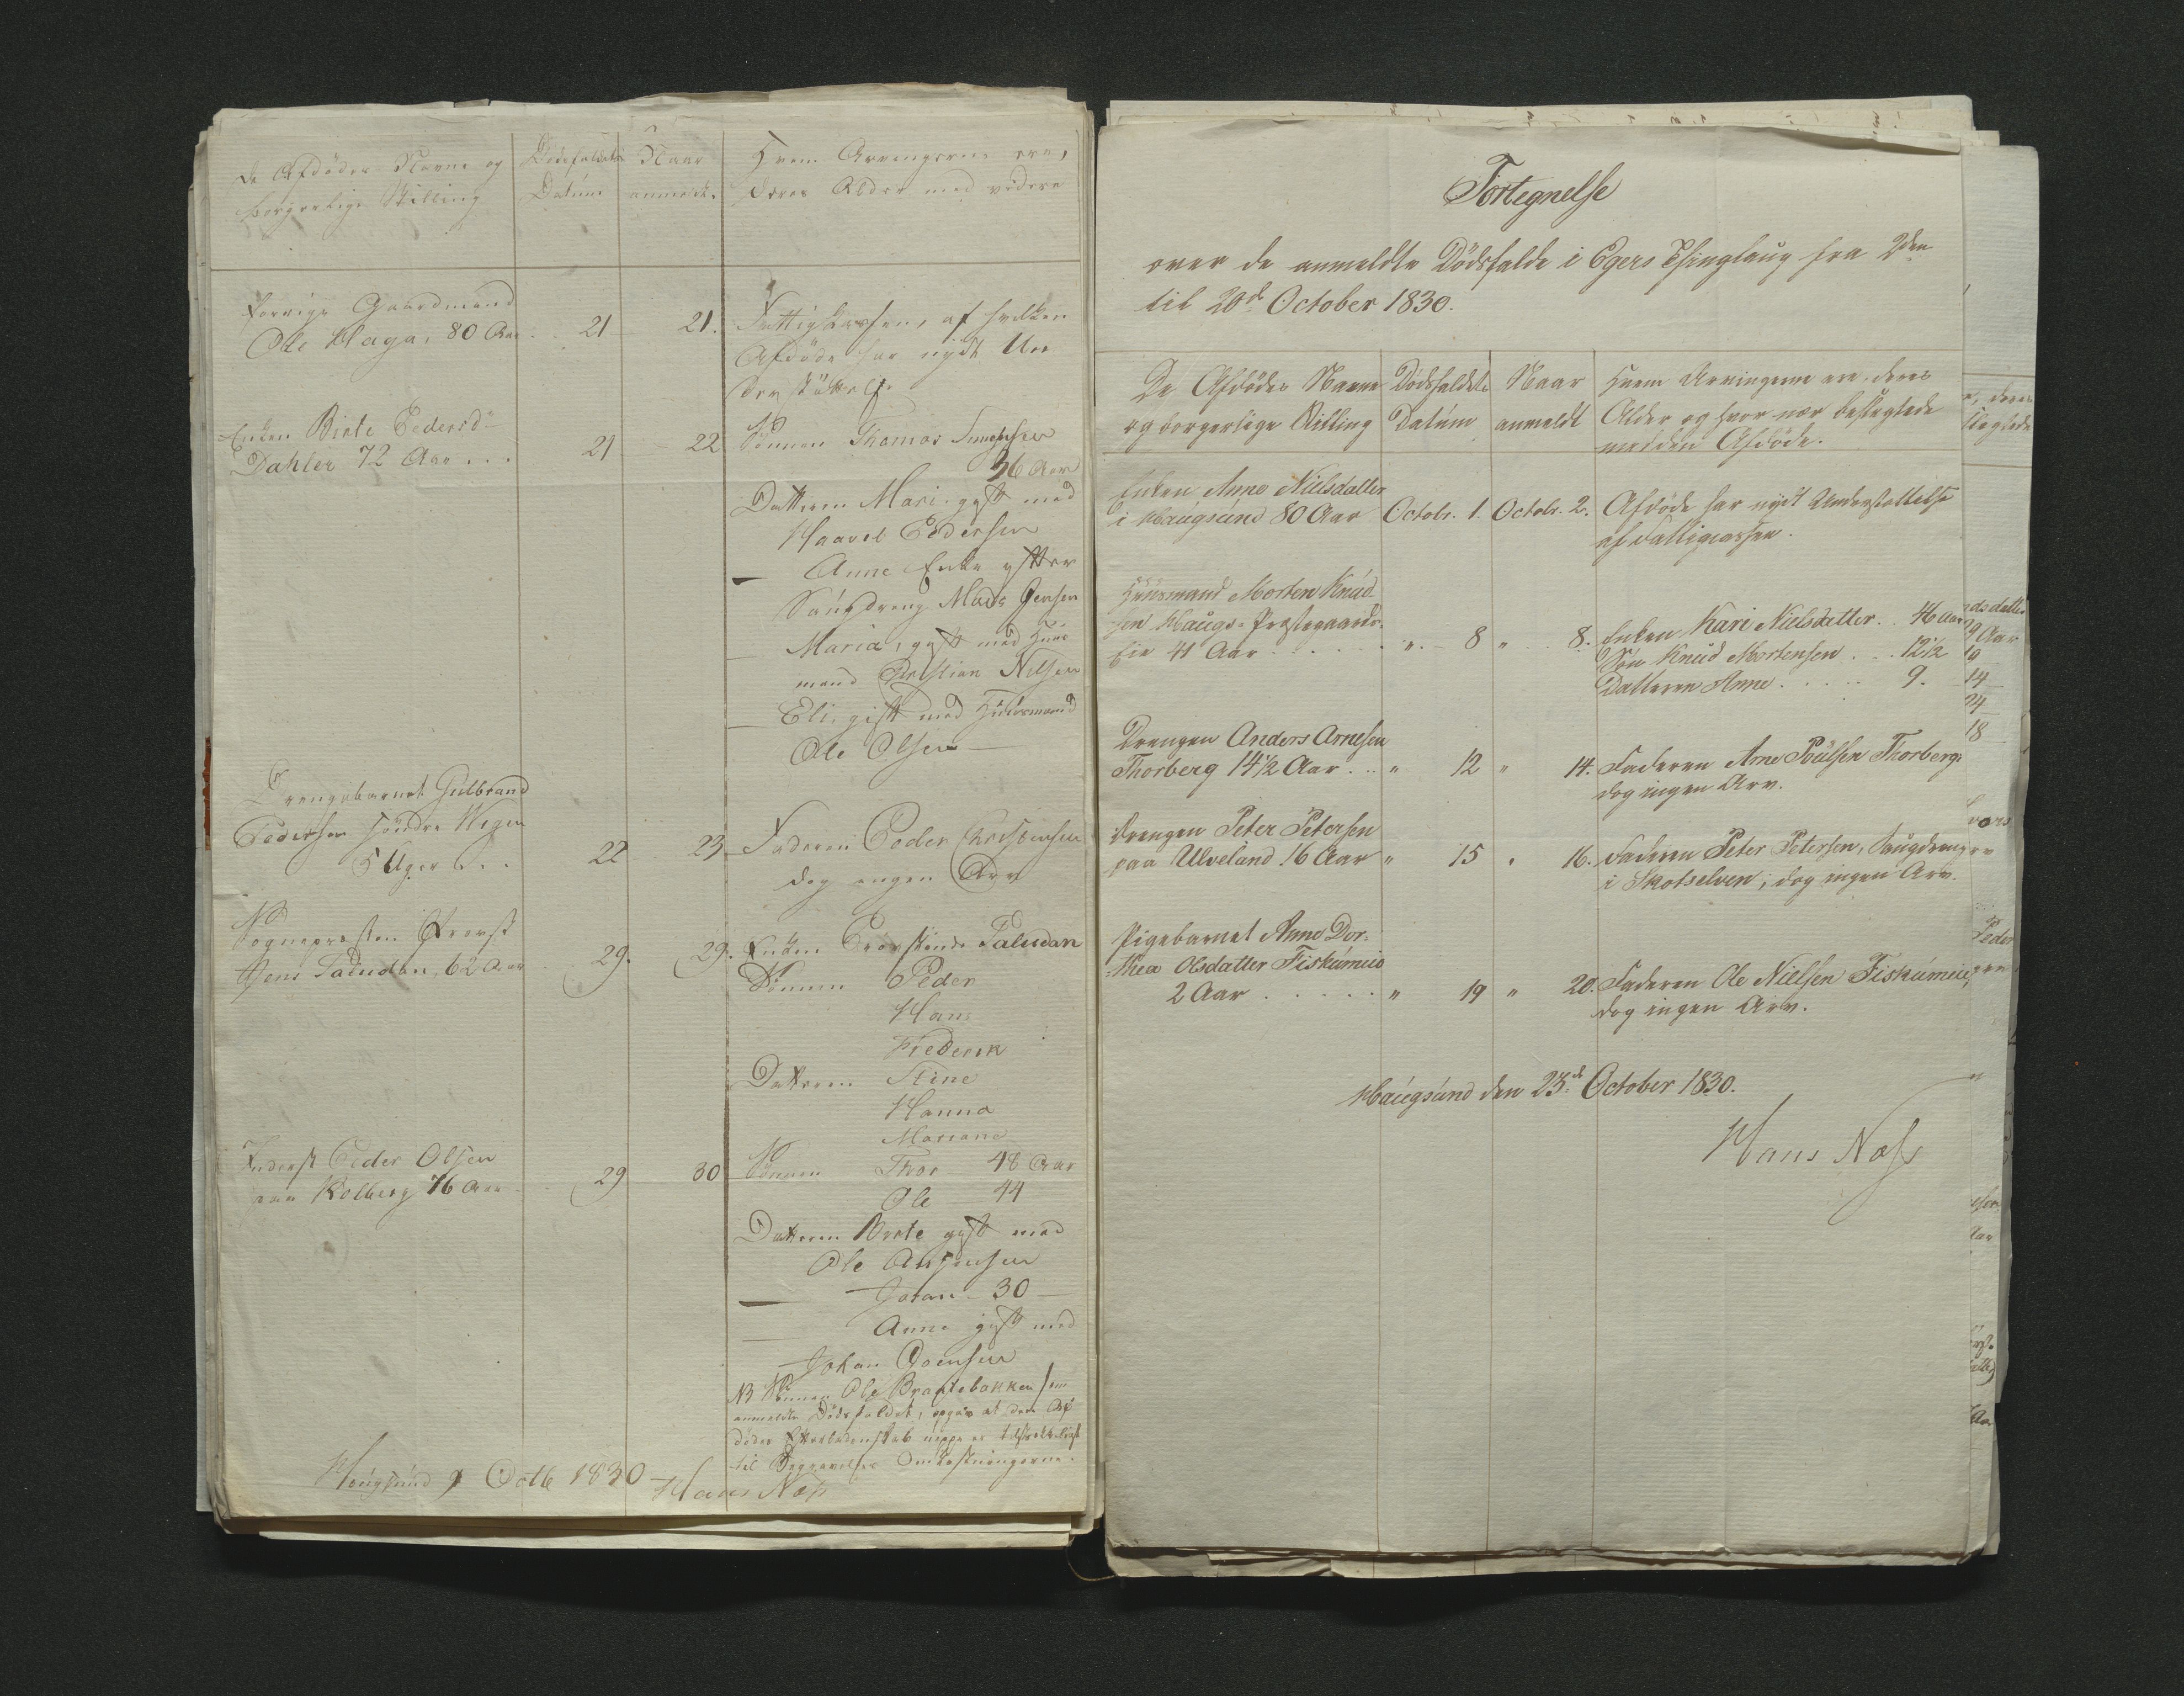 De Afdödes Navne og
borgerlige Stilling
Dödsfaldets
Datum
Naar
anmeldt.
Hvem Arvingerne ere,
deres Alder med videre
Forrige Gaardmand
Ole Haga, 80 Aar . . 21 21. Fattigkassen, af hvilken
Afdöde har nydt Un
derstöttelse.
Enken Birte Pedersd
Dahler 72 Aar . . . 21 22 Sönnen Thomas
36 Aar
Datteren Mari gift med
Haavel Pedersen
— Anne Enke efter
Saugdreng Mads Jensen
— Maria, gift med Huus
mand Christian Nilsen
— Eli, gift med Huusmand
Ole Olsen —
Drengebarnet Gulbrand
Pedersen söndre Wegen
5 Uger . . . 22 23 Faderen Peder Christensen
dog ingen Arv
Sognepræsten Provst
Jens Paludan, 62 Aar 29. 29. Enken Provstinde Paludan
Sönnen Peder
Hans
Frederik
Datteren Stine
Hanna
Mariane
Inderst Peder Olsen
paa Kolberg 76 Aar 29 30 Sönnen Thor 48 Aar
Ole 44
Datteren Berte gift med
Ole
— Johan - 30 —
— Anne gift med
Johan
NB Sönnen Ole Brattebakken som
anmeldte Dödsfaldet, opgav at den Af
dödes Efterladenskab neppe er tilstrækkeligt
til Begravelses Omkostningerne.
Hougsund 9 Octb 1830 — Hans Næss
Fortegnelse
over de anmeldte Dödsfalde i Egers Thinglaug fra 2den
til 20de October 1830.
De Afdödes Navne
og borgerlige Stilling
Dödsfaldets
Datum
Naar
anmeldt
Hvem Arvingerne ere, deres
Alder og hvor nær beslegtede
med den Afdöde.
Enken Anne Nielsdatter
i Haugsund 80 Aar Octobr. 1. Octobr. 2. Afdöde har nydt Understöttelse
af Fattigcassen.
Huusmand Morten Knud-
sen Haugs-Præstegaards-
Eie 41 Aar . . . . . . ". - 8 " 8. Enken Kari Nielsdatter . . 46 Aar
Sön Knud Mortensen . . . 12 1/2
Datteren Anne . . . . . 9.
Drengen Anders Arnesen
Thorberg 14 1/2 Aar . . . " 12 " 14. Faderen Arne Poulsen Thorberg,
dog ingen Arv.
Drengen Peter Petersen
paa Ulveland 16 Aar " 15 " 16. Faderen Peter Petersen, Saugdreng
i Skotselven, dog ingen Arv.
Pigebarnet Anne Dor-
thea Olsdatter Fiskumeie
2 Aar . . . . . " 19 " 20. Faderen Ole Nielsen Fiskumeie,
dog ingen Arv.
Haugsund den 23de October 1830.
Hans Næss